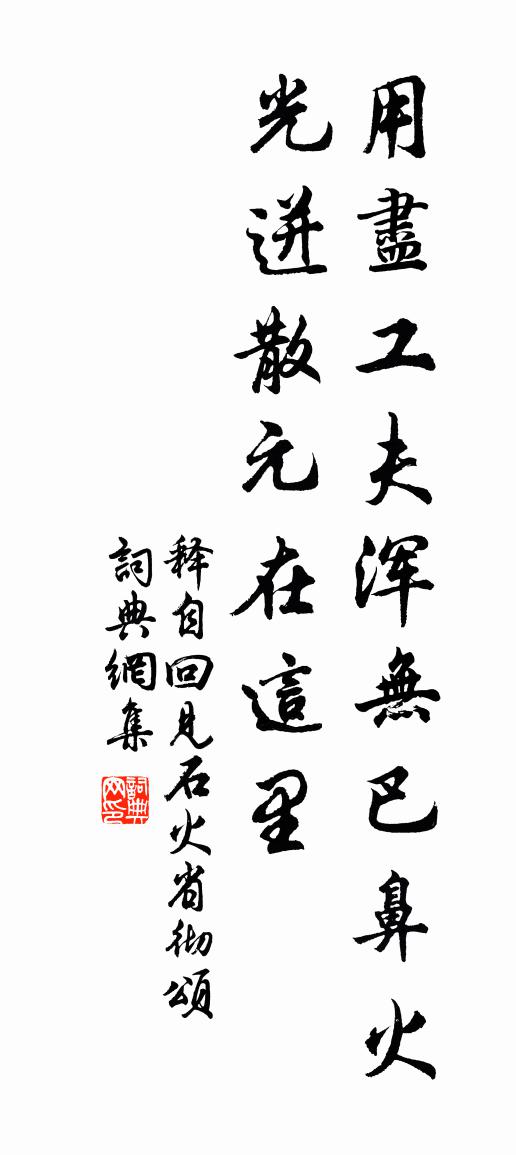 用盡工夫浑無巴鼻火
光迸散元在這里
释自回見石火省彻頌
詞典網集
詞典網印